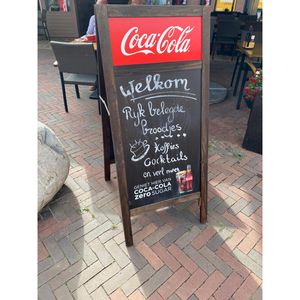 Coca-Cola
Welkom
Rijk belegde
broodjes
Koffies
Cocktails
en veel meer
GENIET HIER VAN
COCA-COLA
zero SUGAR